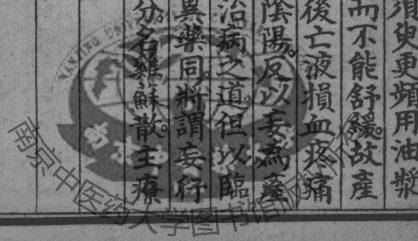 須臾更頻用油漿
而不能舒緩故產
後亡液損血疼痛
陰陽反以妄為產
治病之道但以臨
異藥同將謂妄行
分名雞蘇散主療
南京中医药大学图书馆